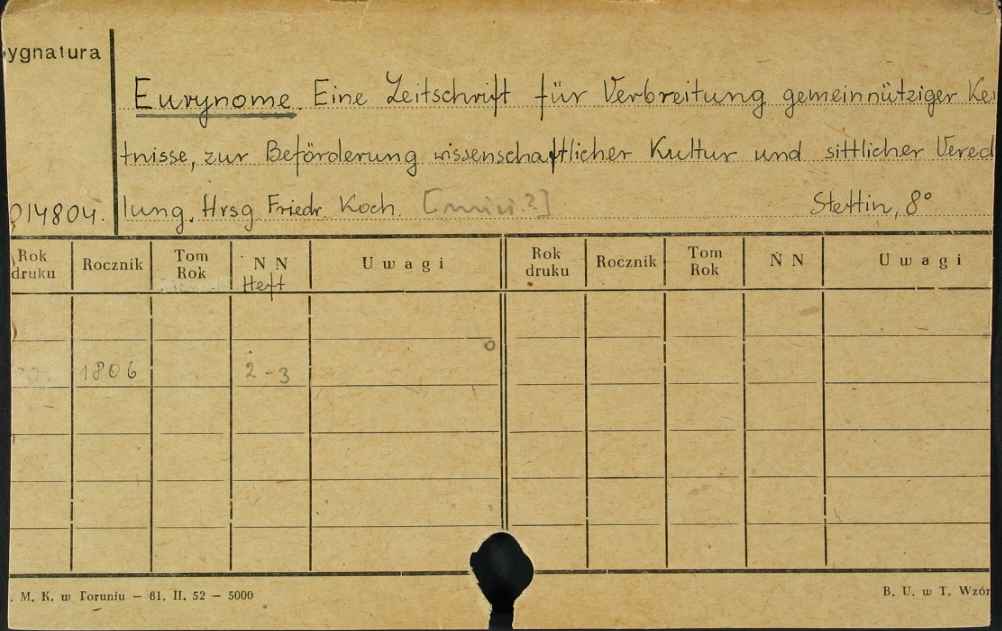 ygnatura
Eurynome. Eine Zeitschrift für Verbreitung gemeinnütziger Ken
tnisse, zur Beförderung wissenschaftlicher Kultur und sittlicher Vered
014804. lung. Hrsg. Friedr. Koch. Stettin, 8°
Rok druku Rocznik Tom Rok N N Uwagi Rok druku Rocznik Tom Rok N N Uwagi
Heft
1806 2-3
. M. K. w Toruniu — 61. II. 52 — 5000 B. U. w T. Wzór